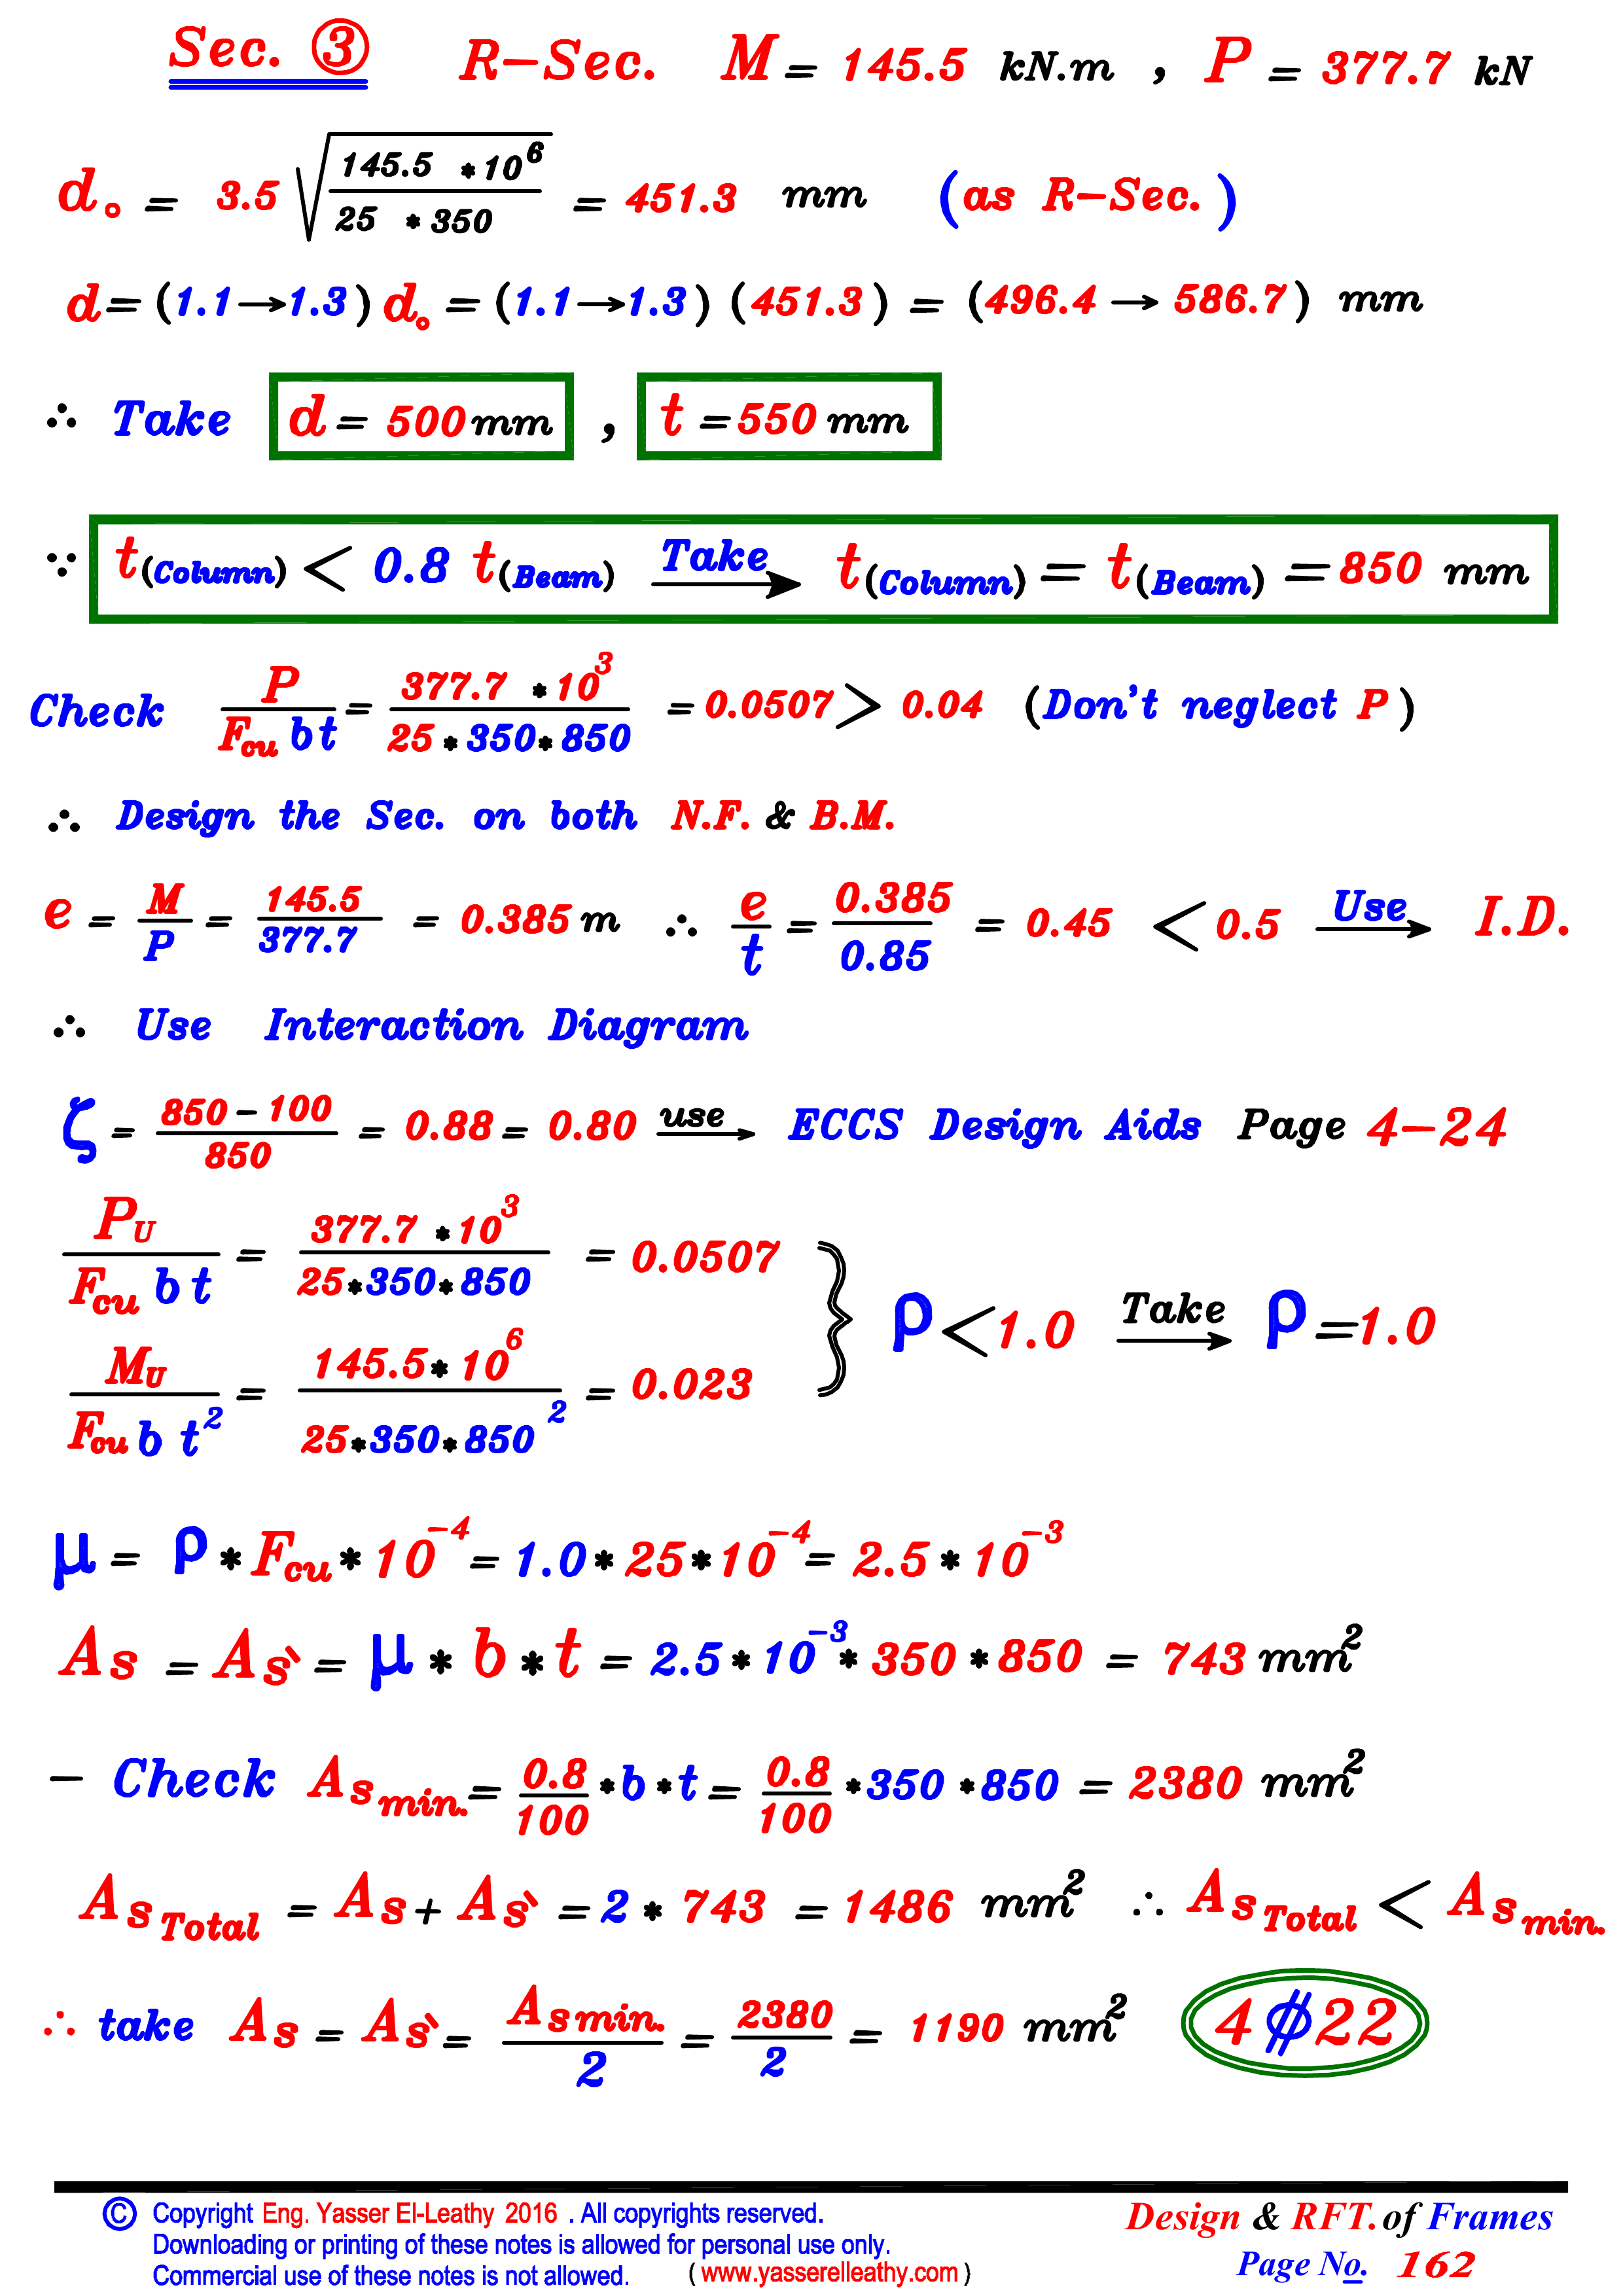 Sec. ③ R-Sec. M = 145.5 kN.m , P = 377.7 kN
d₀ = 3.5 √(145.5 * 10⁶ / 25 * 350) = 451.3 mm (as R-Sec.)
d = (1.1→1.3) d₀ = (1.1→1.3) (451.3) = (496.4 → 586.7) mm
∴ Take d = 500 mm , t = 550 mm
∵ t(Column) < 0.8 t(Beam) Take→ t(Column) = t(Beam) = 850 mm
Check P / Fcu b t = 377.7 * 10³ / 25 * 350 * 850 = 0.0507 > 0.04 (Don't neglect P)
∴ Design the Sec. on both N.F. & B.M.
e = M / P = 145.5 / 377.7 = 0.385 m ∴ e / t = 0.385 / 0.85 = 0.45 < 0.5 Use→ I.D.
∴ Use Interaction Diagram
ζ = 850 - 100 / 850 = 0.88 = 0.80 use→ ECCS Design Aids Page 4-24
PU / Fcu b t = 377.7 * 10³ / 25 * 350 * 850 = 0.0507
MU / Fcu b t² = 145.5 * 10⁶ / 25 * 350 * 850² = 0.023
} ρ < 1.0 Take→ ρ = 1.0
μ = ρ * Fcu * 10⁻⁴ = 1.0 * 25 * 10⁻⁴ = 2.5 * 10⁻³
As = As` = μ * b * t = 2.5 * 10⁻³ * 350 * 850 = 743 mm²
- Check As min. = 0.8 / 100 * b * t = 0.8 / 100 * 350 * 850 = 2380 mm²
As Total = As + As` = 2 * 743 = 1486 mm² ∴ As Total < As min.
∴ take As = As` = As min. / 2 = 2380 / 2 = 1190 mm² 4 ⌀ 22
© Copyright Eng. Yasser El-Leathy 2016 . All copyrights reserved.
Downloading or printing of these notes is allowed for personal use only.
Commercial use of these notes is not allowed. ( www.yasserelleathy.com )
Design & RFT. of Frames
Page No. 162